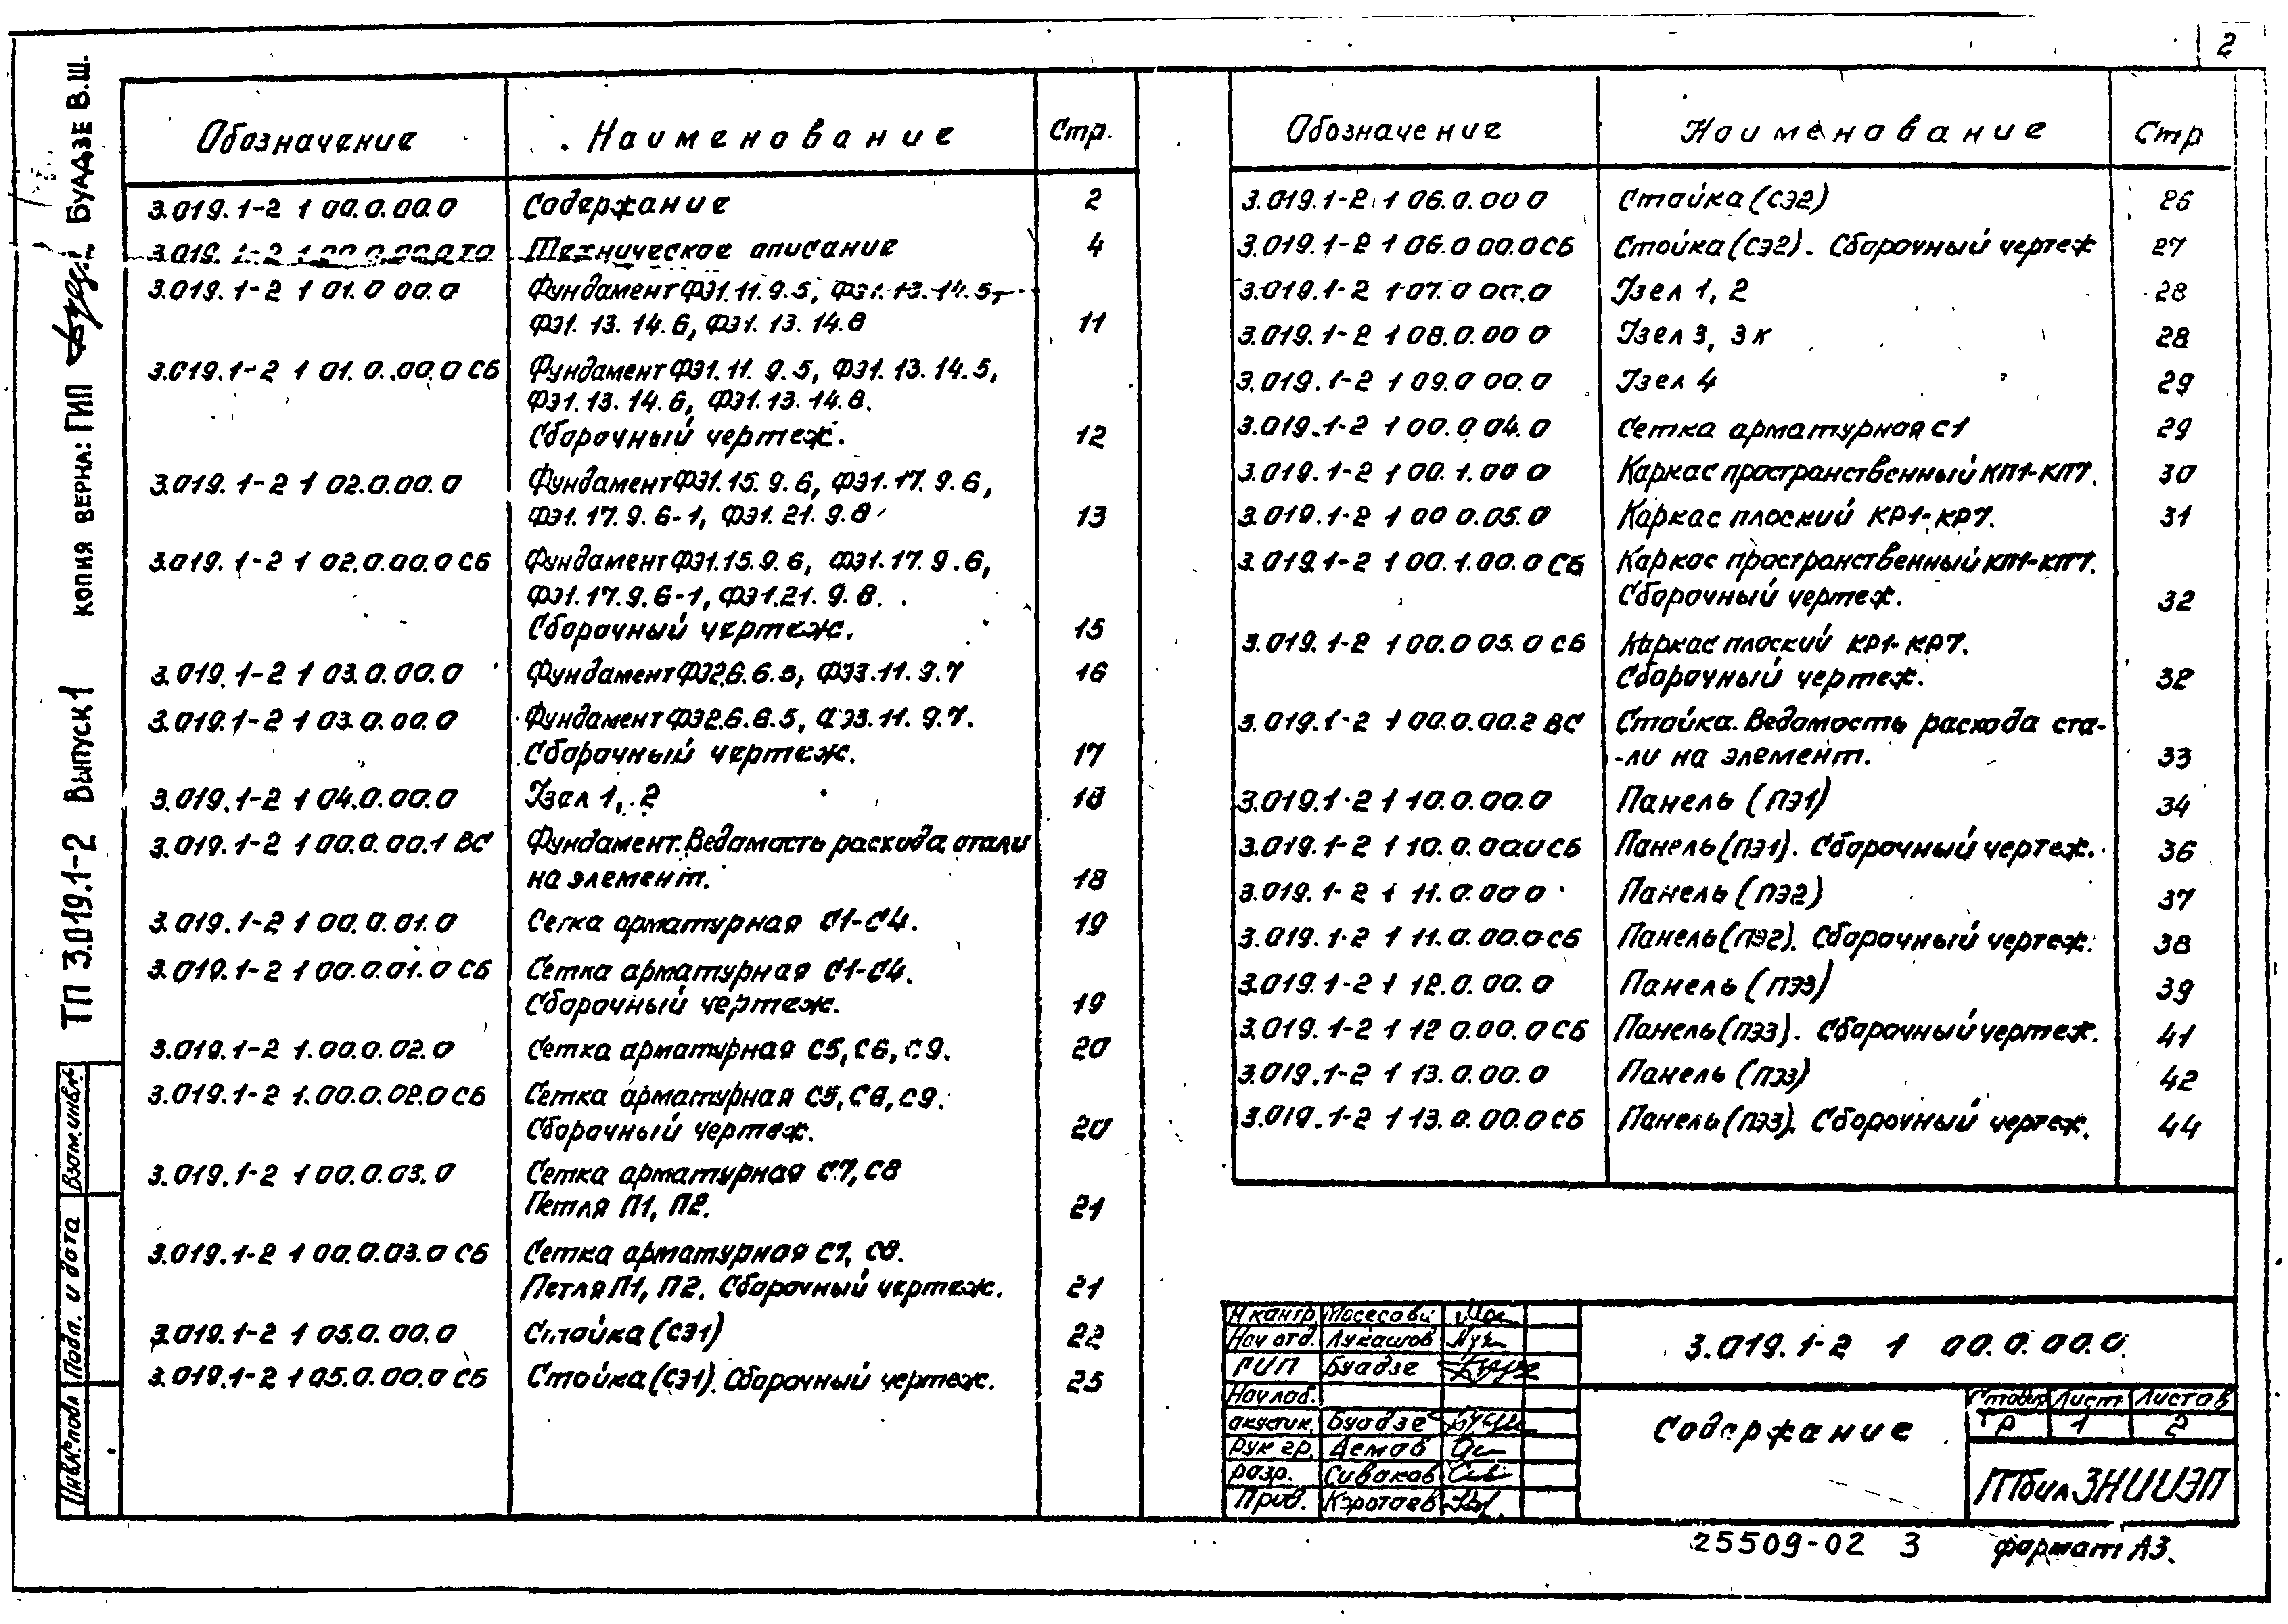 2
ТП 3.019.1-2 Выпуск 1 КОПИЯ ВЕРНА: ГИП БУАДЗЕ В.Ш.
Обозначение Наименование Стр.
3.019.1-2 1 00.0.00.0 Содержание 2
3.019.1-2 1 00.0.00.0 ТО Техническое описание 4
3.019.1-2 1 01.0 00.0 Фундамент ФЭ1.11.9.5, ФЭ1.13.14.5,
ФЭ1.13.14.6, ФЭ1.13.14.8 11
3.019.1-2 1 01.0.00.0 СБ Фундамент ФЭ1.11.9.5, ФЭ1.13.14.5,
ФЭ1.13.14.6, ФЭ1.13.14.8.
Сборочный чертеж. 12
3.019.1-2 1 02.0.00.0 Фундамент ФЭ1.15.9.6, ФЭ1.17.9.6,
ФЭ1.17.9.6-1, ФЭ1.21.9.8 13
3.019.1-2 1 02.0.00.0 СБ Фундамент ФЭ1.15.9.6, ФЭ1.17.9.6,
ФЭ1.17.9.6-1, ФЭ1.21.9.8.
Сборочный чертеж. 15
3.019.1-2 1 03.0.00.0 Фундамент ФЭ2.6.6.5, ФЭ3.11.9.7 16
3.019.1-2 1 03.0.00.0 Фундамент ФЭ2.6.6.5, ФЭ3.11.9.7.
Сборочный чертеж. 17
3.019.1-2 1 04.0.00.0 Узел 1, 2 18
3.019.1-2 1 00.0.00.1 ВС Фундамент. Ведомость расхода стали
на элемент. 18
3.019.1-2 1 00.0.01.0 Сетка арматурная С1-С4. 19
3.019.1-2 1 00.0.01.0 СБ Сетка арматурная С1-С4.
Сборочный чертеж. 19
3.019.1-2 1.00.0.02.0 Сетка арматурная С5, С6, С9. 20
3.019.1-2 1.00.0.02.0 СБ Сетка арматурная С5, С6, С9.
Сборочный чертеж. 20
3.019.1-2 1 00.0.03.0 Сетка арматурная С7, С8
Петля П1, П2. 21
3.019.1-2 1 00.0.03.0 СБ Сетка арматурная С7, С8.
Петля П1, П2. Сборочный чертеж. 21
3.019.1-2 1 05.0.00.0 Стойка (СЭ1) 22
3.019.1-2 1 05.0.00.0 СБ Стойка (СЭ1). Сборочный чертеж. 25
Обозначение Наименование Стр
3.019.1-2 1 06.0.00 0 Стойка (СЭ2) 26
3.019.1-2 1 06.0 00.0 СБ Стойка (СЭ2). Сборочный чертеж 27
3.019.1-2 1 07.0 00.0 Узел 1, 2 28
3.019.1-2 1 08.0.00 0 Узел 3, 3к 28
3.019.1-2 1 09.0 00.0 Узел 4 29
3.019.1-2 1 00.0 04.0 Сетка арматурная С1 29
3.019.1-2 1 00.1.00 0 Каркас пространственный КП1-КП7. 30
3.019.1-2 1 00 0.05.0 Каркас плоский КР1-КР7. 31
3.019.1-2 1 00.1.00.0 СБ Каркас пространственный КП1-КП7.
Сборочный чертеж. 32
3.019.1-2 1 00.0 05.0 СБ Каркас плоский КР1-КР7.
Сборочный чертеж. 32
3.019.1-2 1 00.0.00.2 ВС Стойка. Ведомость расхода ста-
-ли на элемент. 33
3.019.1-2 1 10.0.00.0 Панель (ПЭ1) 34
3.019.1-2 1 10.0.00.0 СБ Панель (ПЭ1). Сборочный чертеж. 36
3.019.1-2 1 11.0.00 0 Панель (ПЭ2) 37
3.019.1-2 1 11.0.00.0 СБ Панель (ПЭ2). Сборочный чертеж. 38
3.019.1-2 1 12.0.00.0 Панель (ПЭ3) 39
3.019.1-2 1 12 0.00.0 СБ Панель (ПЭ3). Сборочный чертеж. 41
3.019.1-2 1 13.0.00.0 Панель (ПЭ3) 42
3.019.1-2 1 13.0.00.0 СБ Панель (ПЭ3). Сборочный чертеж. 44
Взам.инв.№
Подп. и дата
Инв.№ подл
Н контр
Нач отд. Лукашов
ГИП Буадзе
Нач лаб.
акустик. Буадзе
Рук гр. Демов
разр. Сиваков
Пров. Коротаев
3.019.1-2 1 00.0.00.0
Содержание
Стадия Лист Листов
ТР 1 2
ТбилЗНИИЭП
25509-02 3 формат А3.